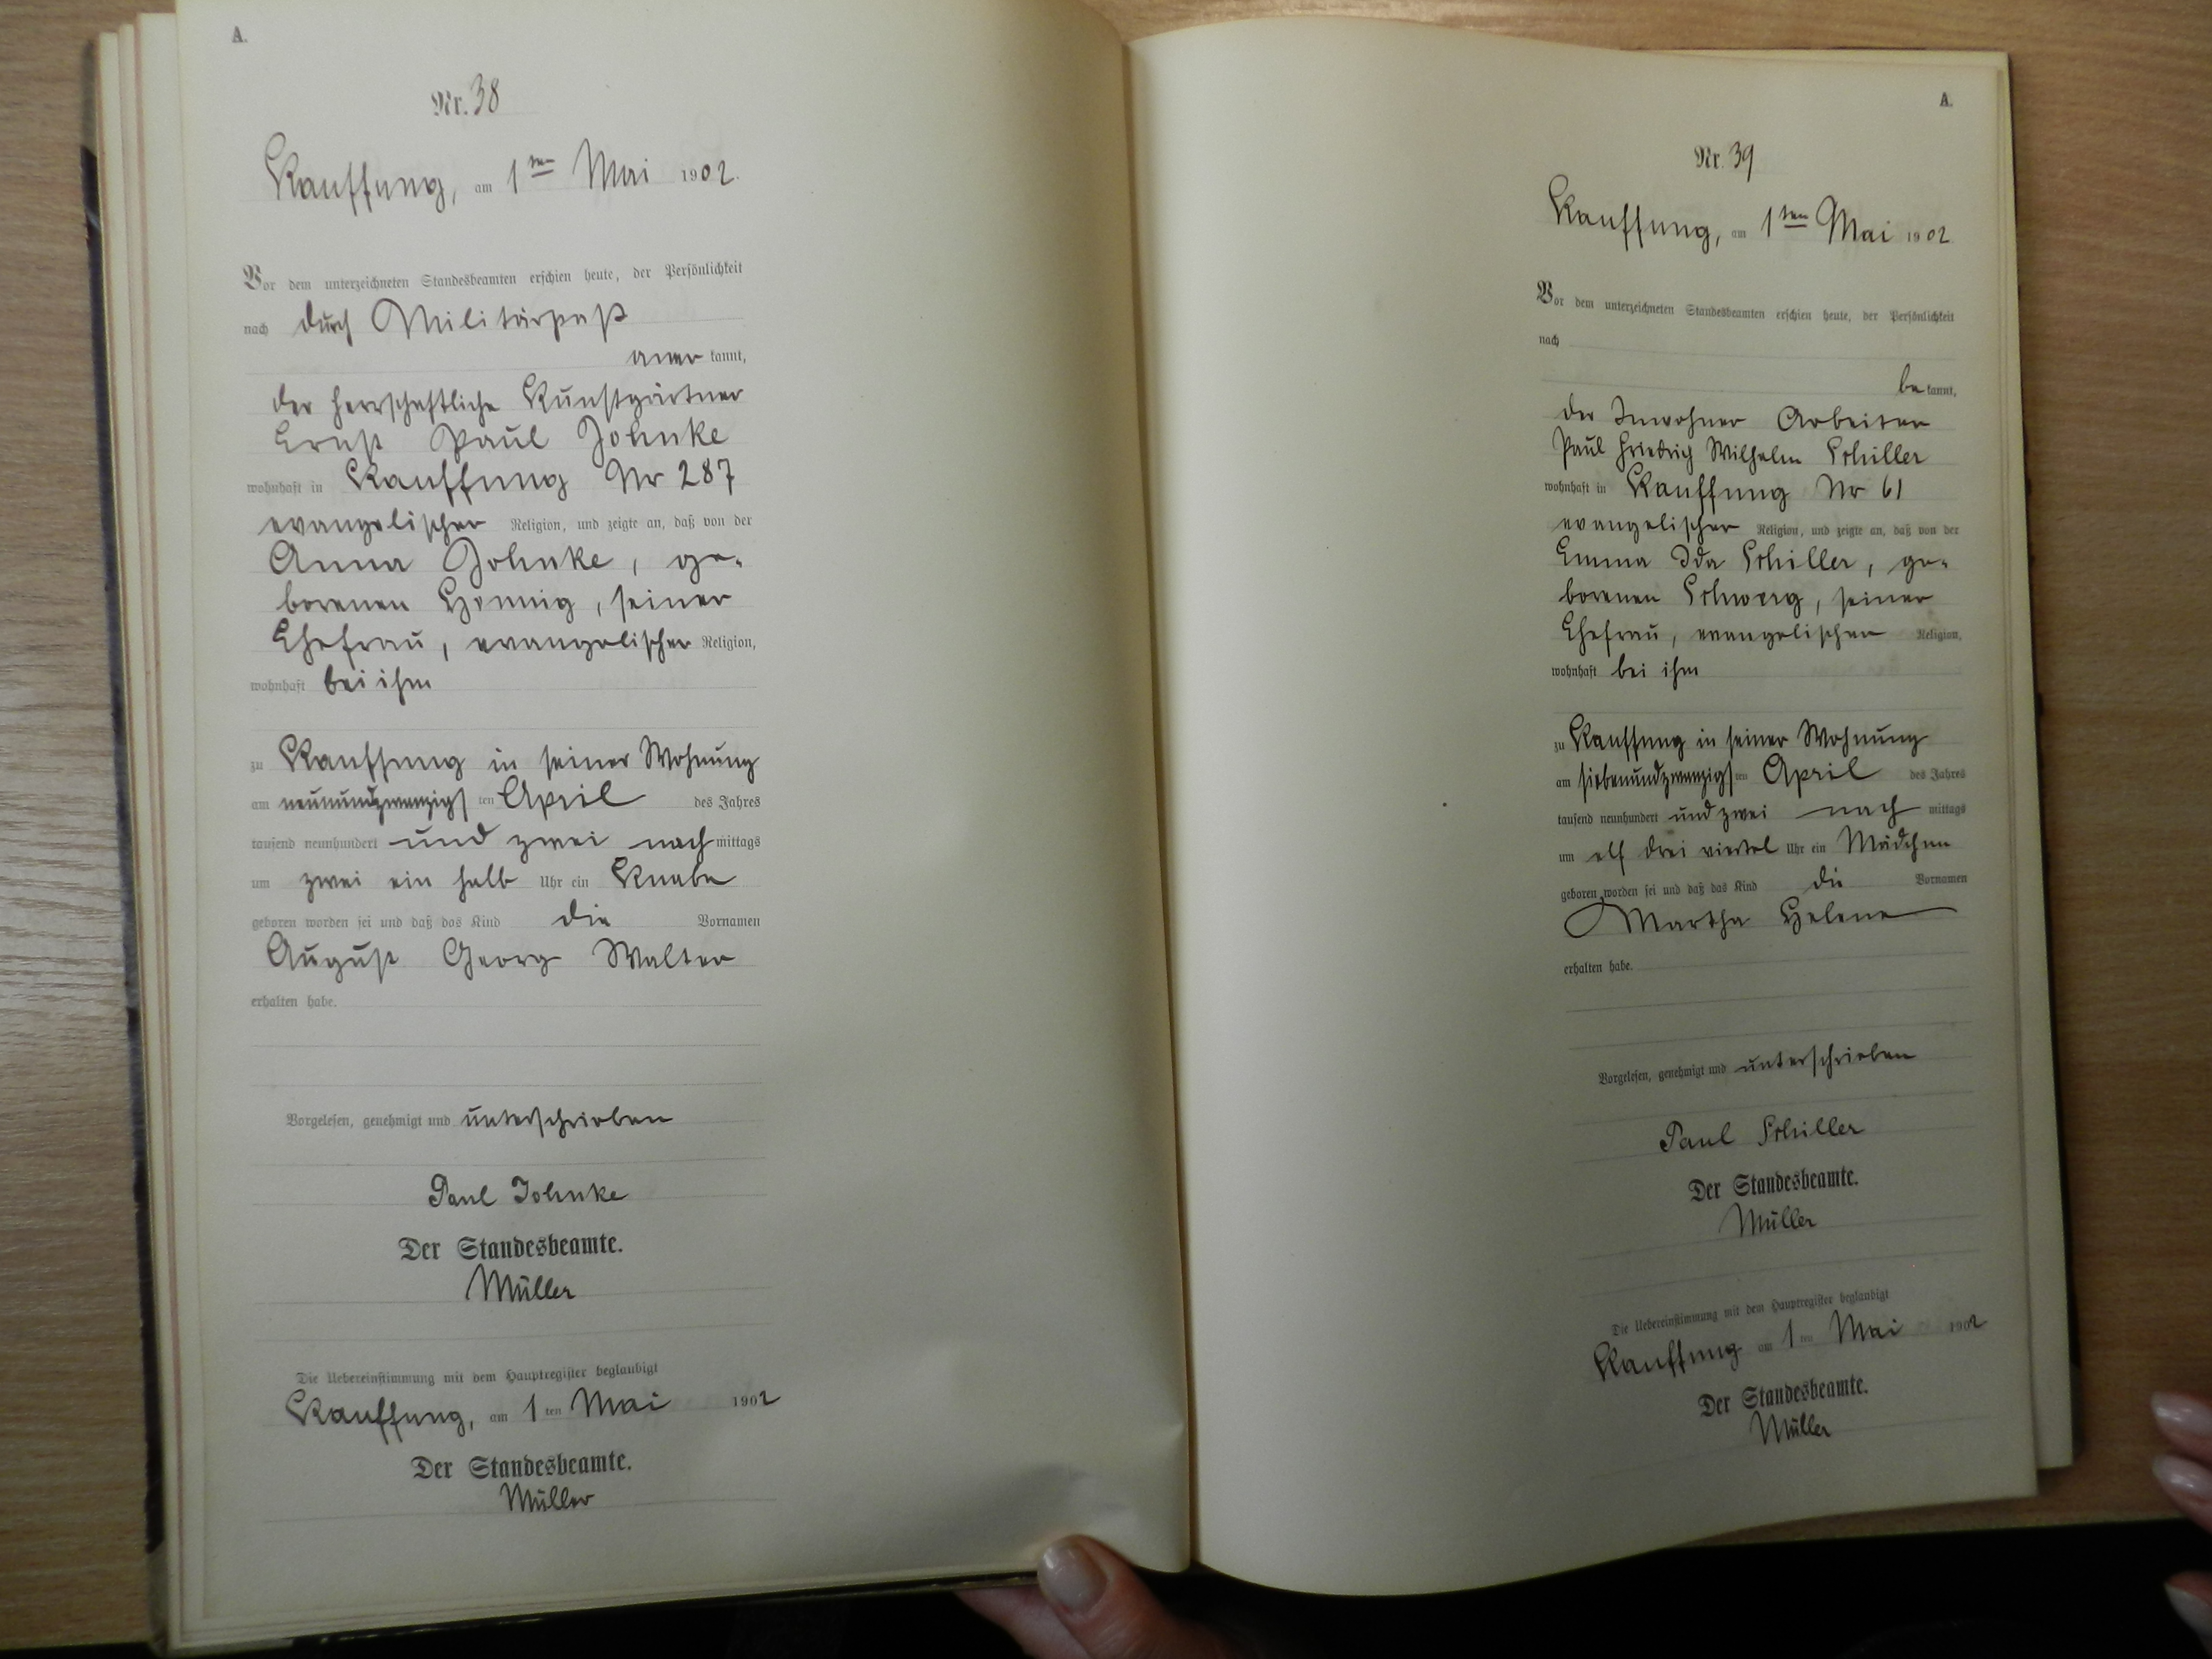 A.
Nr. 38
Kauffung, am 1ten Mai 1902.
Vor dem unterzeichneten Standesbeamten erschien heute, der Persönlichkeit
nach durch Militärpaß
aner kannt,
der herrschaftliche Kunstgärtner
Ernst Paul Johnke
wohnhaft in Kauffung Nr 287
evangelischer Religion, und zeigte an, daß von der
Anna Johnke, ge-
borenen Hennig, seiner
Ehefrau, evangelischer Religion,
wohnhaft bei ihm
zu Kauffung in seiner Wohnung
am neunundzwanzigsten April des Jahres
tausend neunhundert und zwei nachmittags
um zwei ein halb Uhr ein Knabe
geboren worden sei und daß das Kind die Vornamen
August Georg Walter
erhalten habe.
Vorgelesen, genehmigt und unterschrieben
Paul Johnke
Der Standesbeamte.
Müller
Die Uebereinstimmung mit dem Hauptregister beglaubigt
Kauffung, am 1ten Mai 1902
Der Standesbeamte.
Müller
A.
Nr. 39
Kauffung, am 1ten Mai 1902
Vor dem unterzeichneten Standesbeamten erschien heute, der Persönlichkeit
nach
be kannt,
der Inwohner Arbeiter
Paul Friedrich Wilhelm Schiller
wohnhaft in Kauffung Nr 61
evangelischer Religion, und zeigte an, daß von der
Emma Ida Schiller, ge-
borenen, seiner
Ehefrau, evangelischen Religion,
wohnhaft bei ihm
zu Kauffung in seiner Wohnung
am siebenundzwanzigsten April des Jahres
tausend neunhundert und zwei nachmittags
um elf drei viertel Uhr ein Mädchen
geboren worden sei und daß das Kind die Vornamen
Martha Helene
erhalten habe.
Vorgelesen, genehmigt und unterschrieben
Paul Schiller
Der Standesbeamte.
Müller
Die Uebereinstimmung mit dem Hauptregister beglaubigt
Kauffung am 1ten Mai 1902
Der Standesbeamte.
Müller